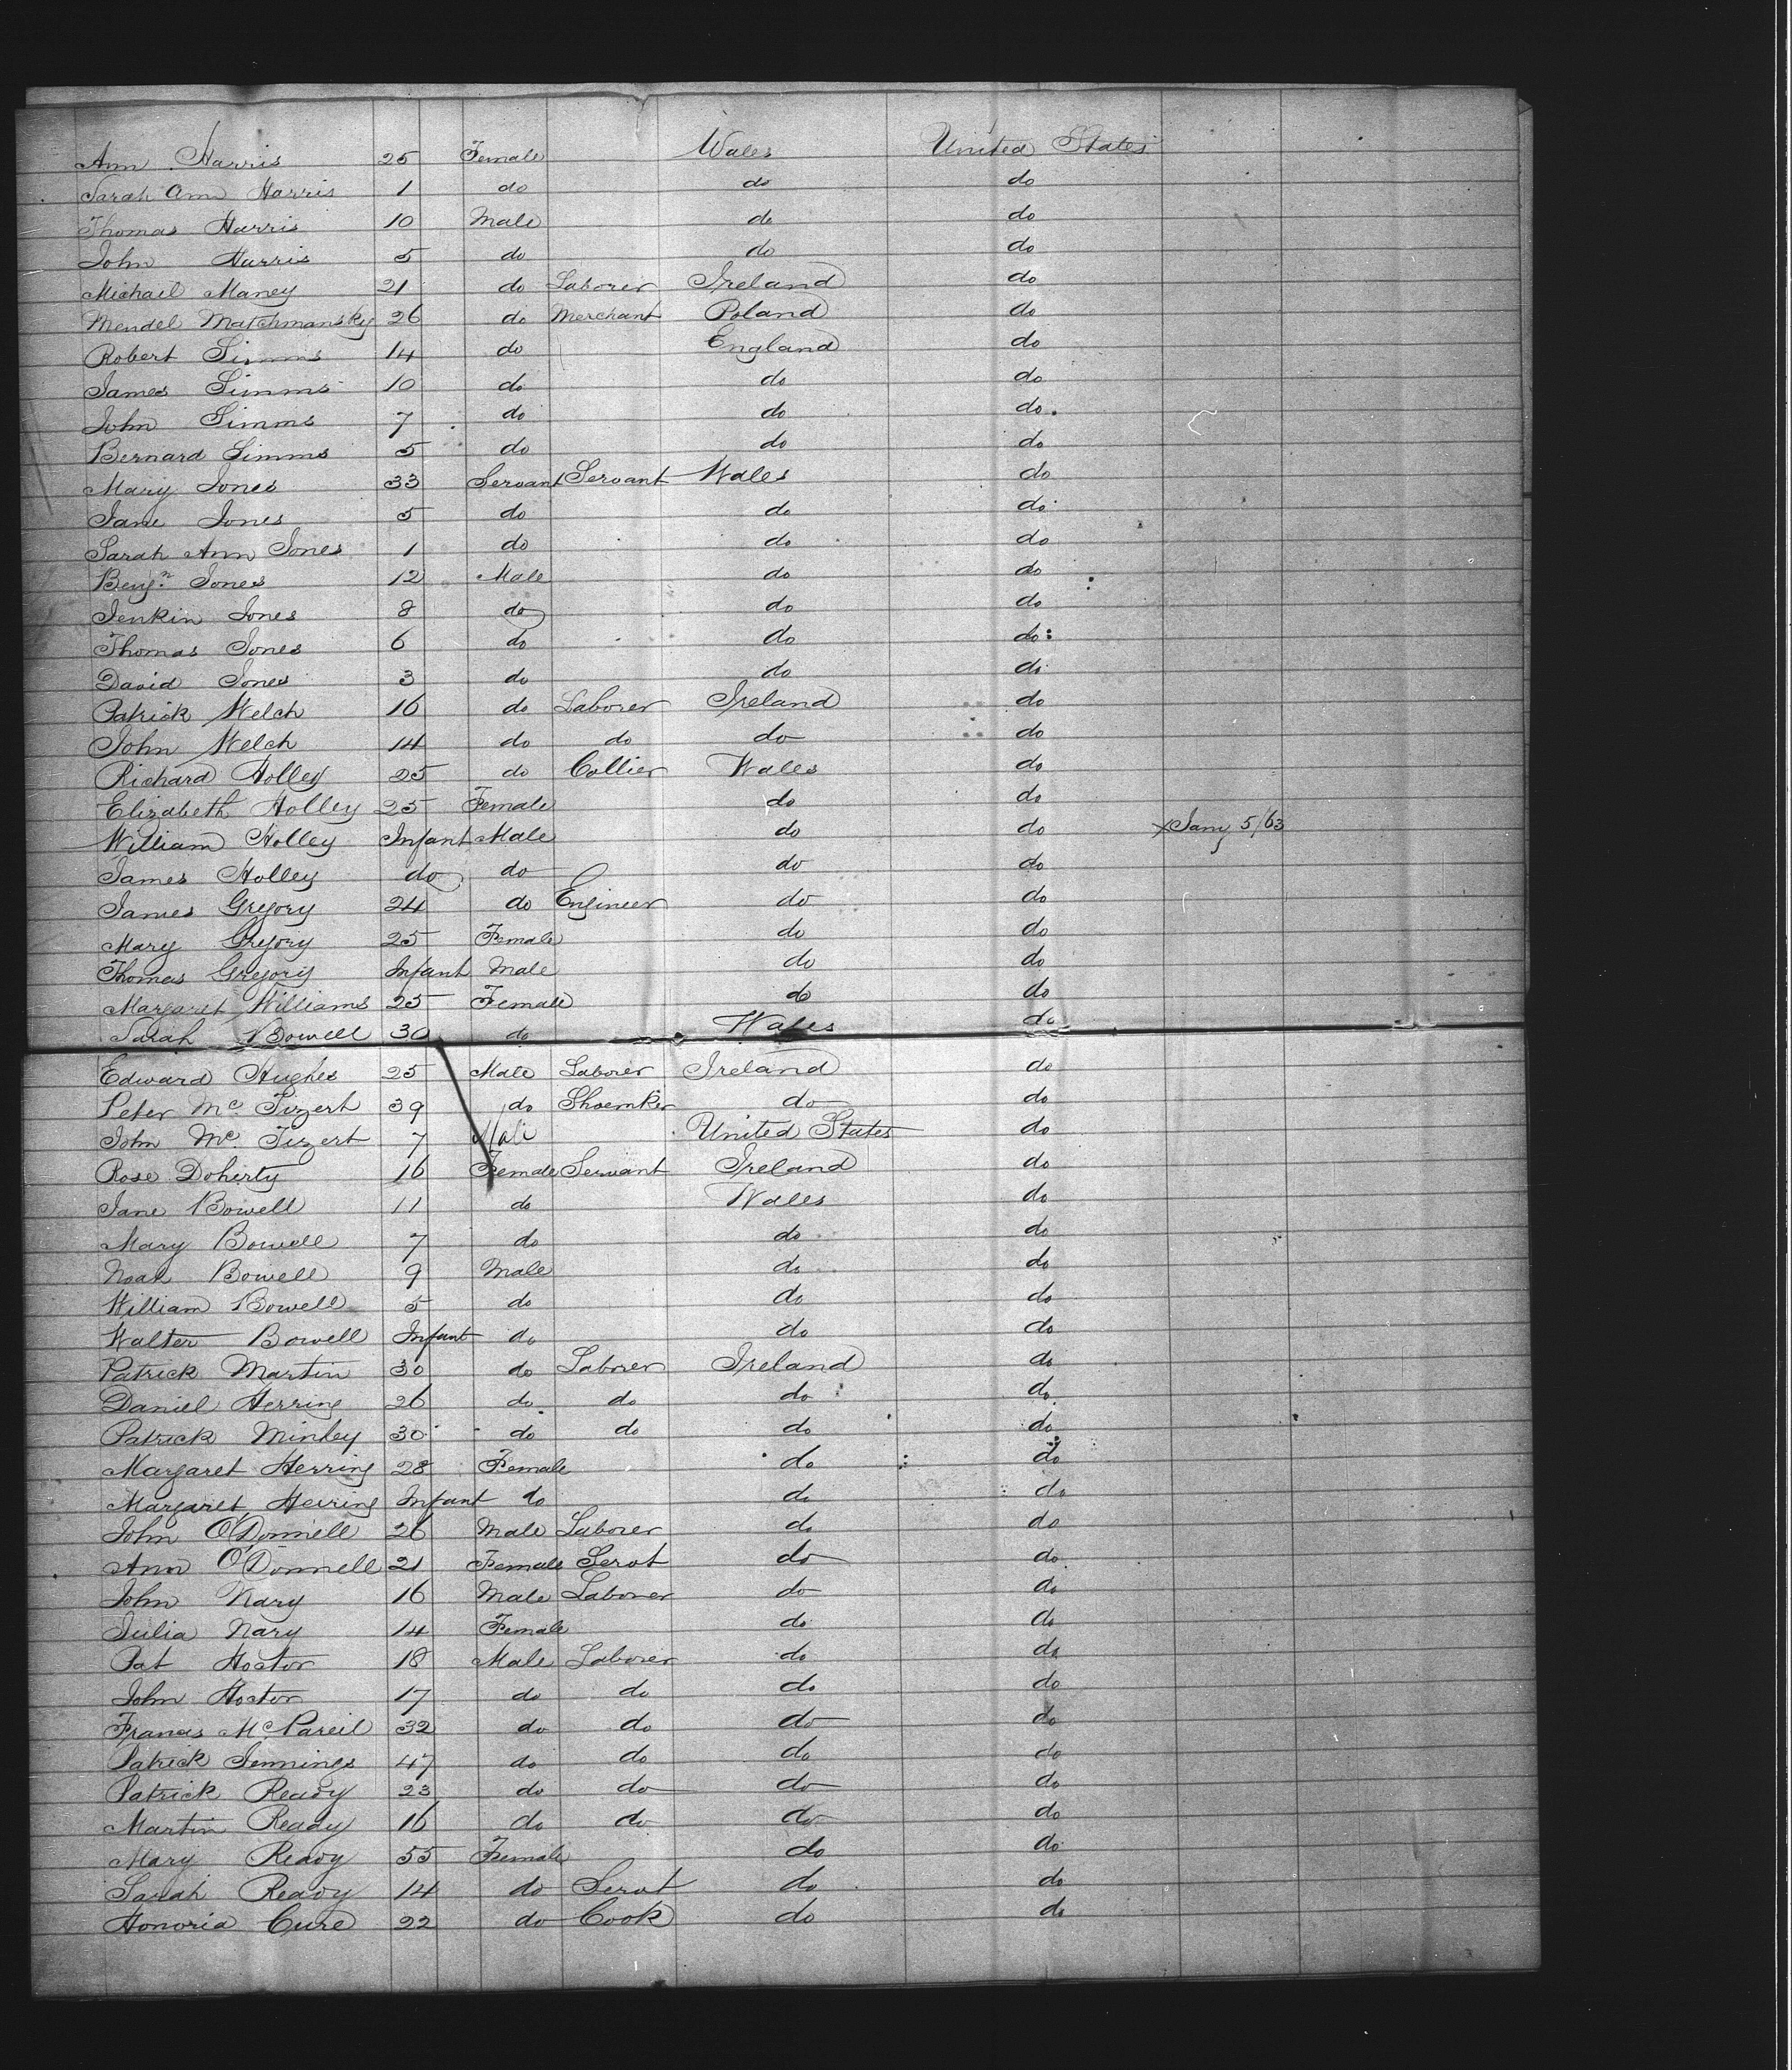 Ann Harris 25 Female Wales United States
Sarah Ann Harris 1 do do do
Thomas Harris 10 Male do do
John Harris 5 do do do
Michail Maney 21 do Laborer Ireland do
Mendel Matchmansky 26 do Merchant Poland do
Robert Simms 14 do England do
James Simms 10 do do do
John Simms 7 do do do
Bernard Simms 5 do do do
Mary Jones 33 Servant Servant Wales do
Jane Jones 5 do do do
Sarah Ann Jones 1 do do do
Benjn Jones 12 Male do do
Jenkin Jones 8 do do do
Thomas Jones 6 do do do
David Jones 3 do do do
Patrick Welch 16 do Laborer Ireland do
John Welch 14 do do do do
Richard Holley 25 do Collier Wales do
Elizabeth Holley 25 Female do do
William Holley Infant Male do do x Jany 5/63
James Holley do do do do
James Gregory 24 do Engineer do do
Mary Gregory 25 Female do do
Thomas Gregory Infant Male do do
Margaret Williams 25 Female do do
Sarah Bowell 30 do Wales do
Edward Hughes 25 Male Laborer Ireland do
Peter Mc 39 do Shoemker do do
John Mc 7 Male United States do
Rose Doherty 16 Female Servant Ireland do
Jane Bowell 11 do Wales do
Mary Bowell 7 do do do
Noah Bowell 9 Male do do
William Bowell 5 do do do
Walter Bowell Infant do do do
Patrick Martin 30 do Laborer Ireland do
Daniel Herring 26 do do do do
Patrick Minhey 30 do do do do
Margaret Herring 28 Female do do
Margaret Herring Infant do do do
John O'Donnell 26 Male Laborer do do
Ann O'Donnell 21 Female Servt do do
John Nary 16 Male Laborer do do
Julia Nary 14 Female do do
Pat Hoctor 18 Male Laborer do do
John Hoctor 17 do do do do
Francis Mc Pareil 32 do do do do
Patrick Jennings 47 do do do do
Patrick Ready 23 do do do do
Martin Ready 16 do do do do
Mary Ready 55 Female do do
Sarah Ready 14 do Servt do do
Honoria Cure 22 do Cook do do